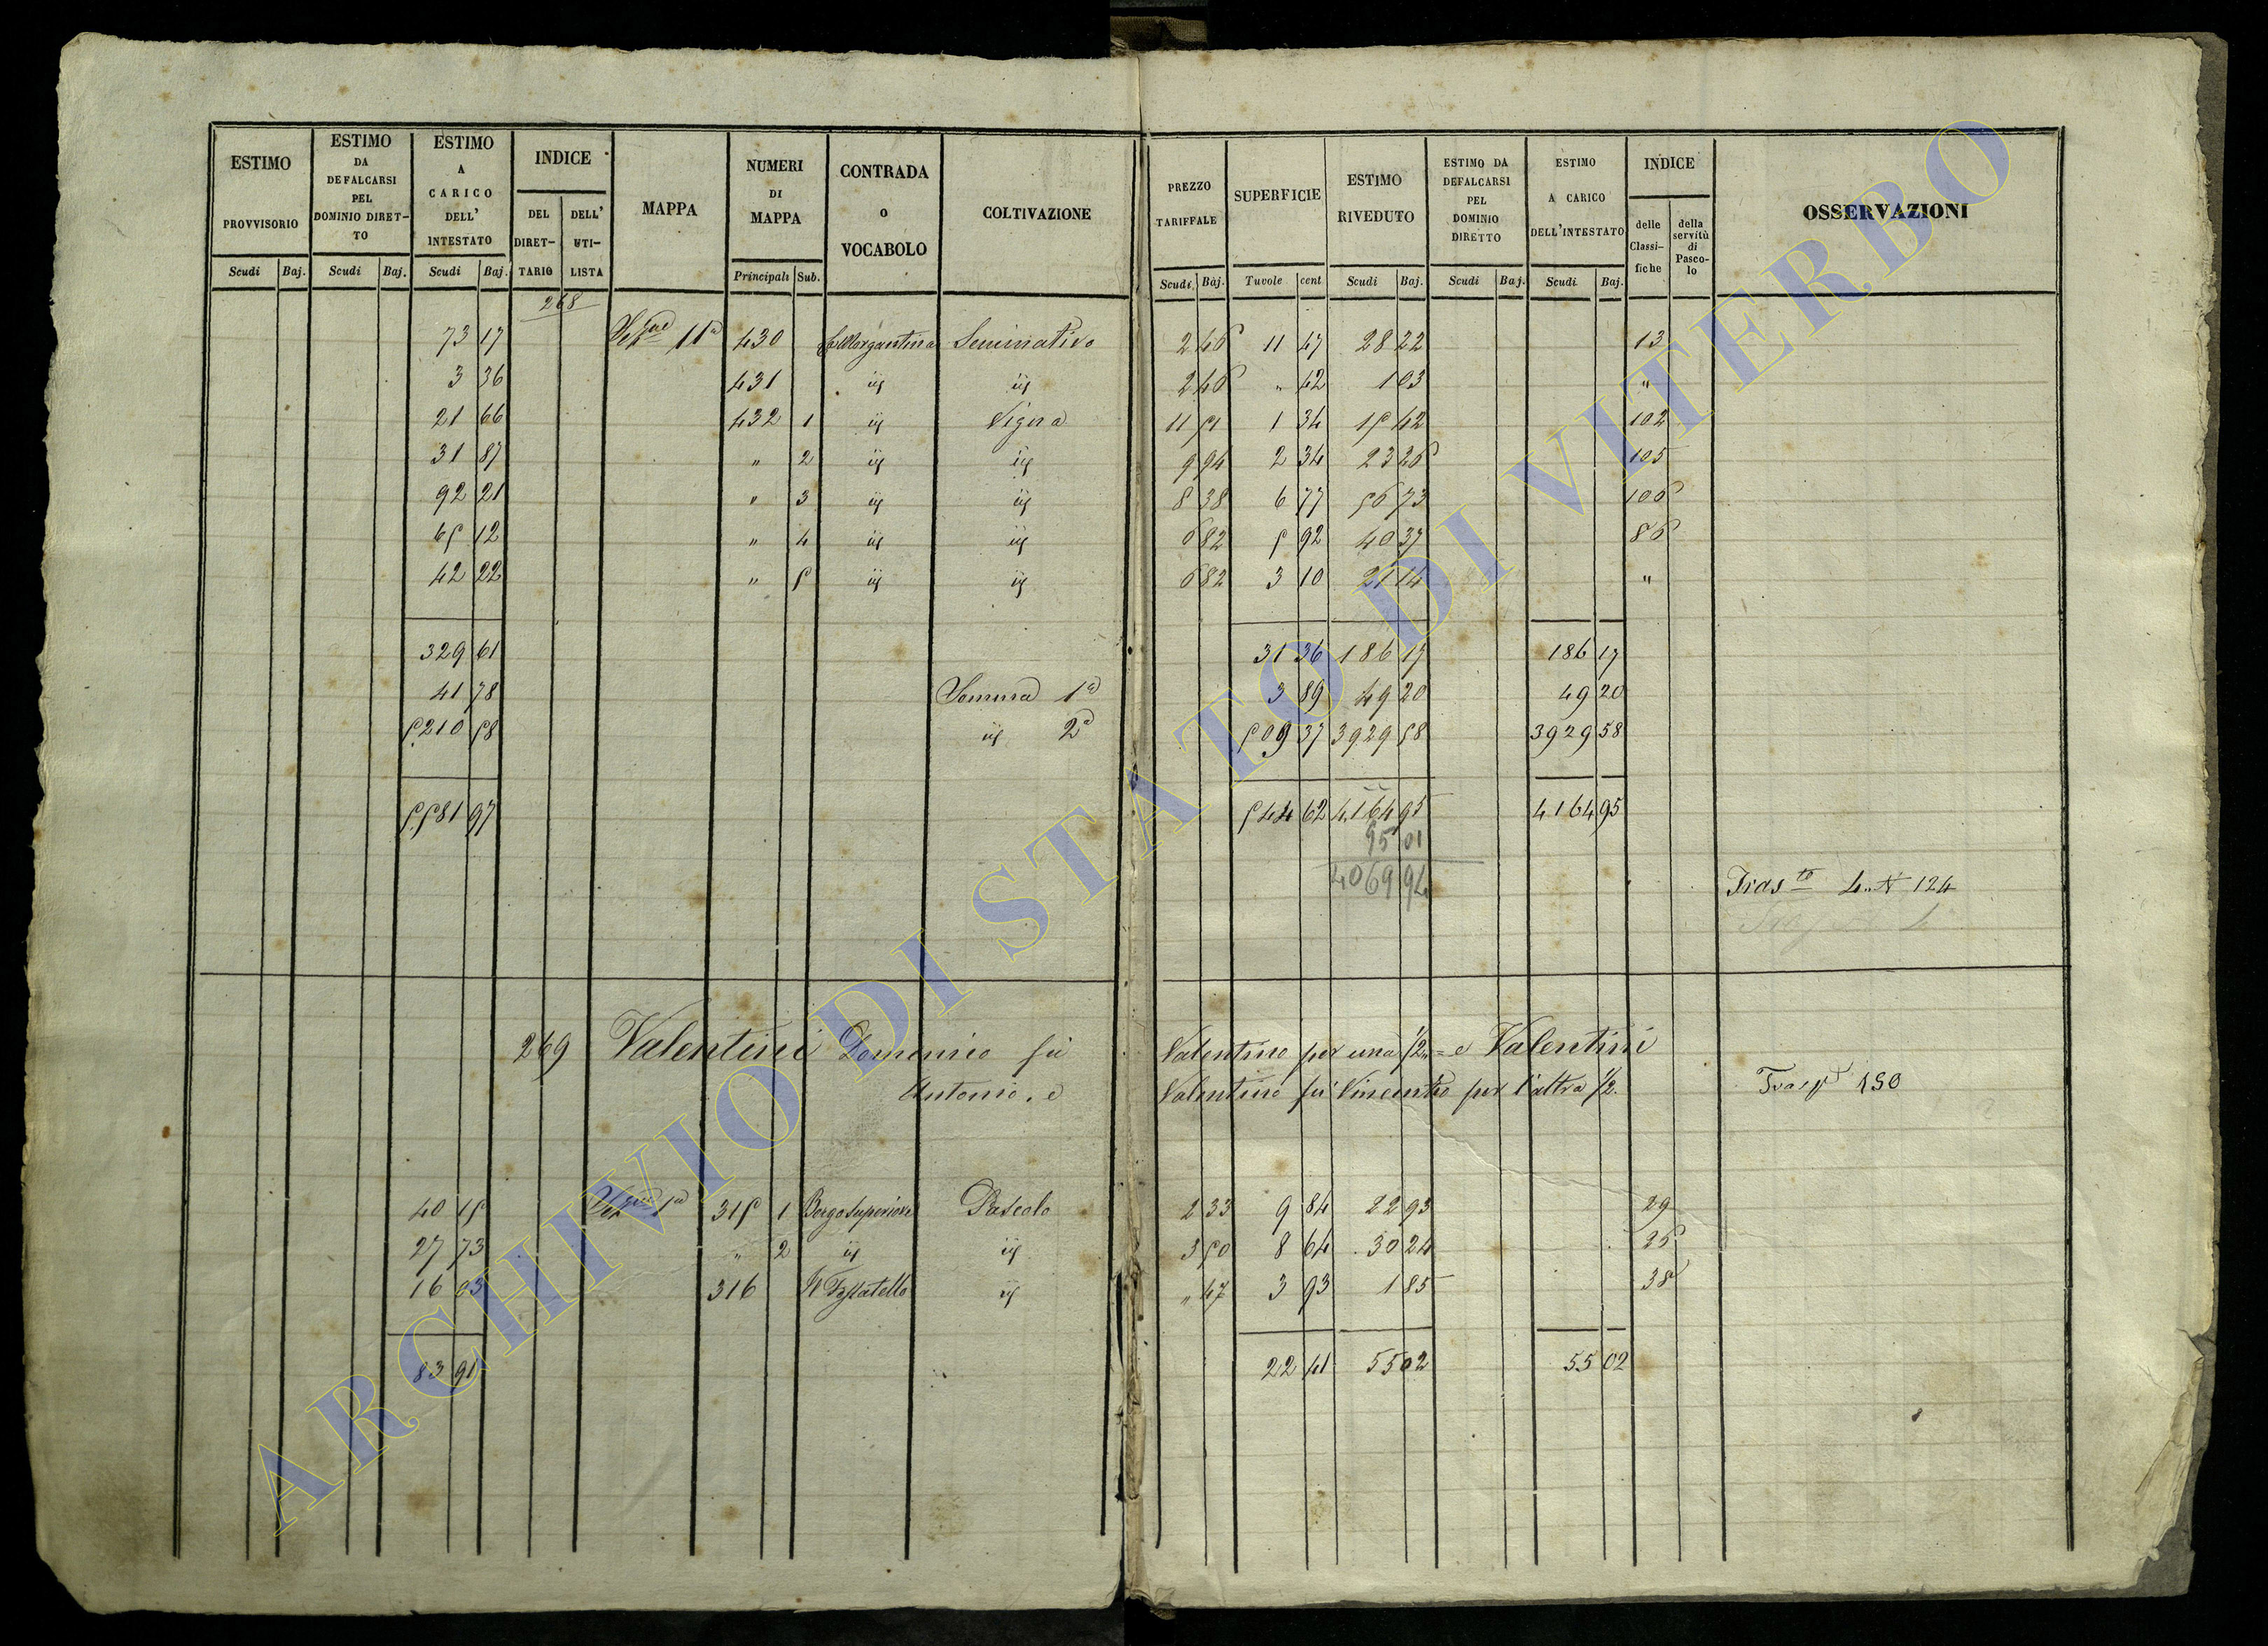 ESTIMO PROVVISORIO Scudi Baj.
ESTIMO DA DEFALCARSI PEL DOMINIO DIRET-TO Scudi Baj.
ESTIMO A CARICO DELL' INTESTATO Scudi Baj.
INDICE DEL DIRET-TARIO DELL' UTI-LISTA
MAPPA
NUMERI DI MAPPA Principali Sub.
CONTRADA o VOCABOLO
COLTIVAZIONE
PREZZO TARIFFALE Scudi Baj.
SUPERFICIE Tavole cent
ESTIMO RIVEDUTO Scudi Baj.
ESTIMO DA DEFALCARSI PEL DOMINIO DIRETTO Scudi Baj.
ESTIMO A CARICO DELL'INTESTATO Scudi Baj.
INDICE delle Classi-fiche della servitù di Pasco-lo
OSSERVAZIONI
268
73 17 11a 430 Seminativo 2 46 11 47 28 22 13
3 36 431 2 46 " 42 1 03 "
21 66 432 1 Vigna 11 51 1 34 15 42 102
31 87 " 2 9 94 2 34 23 26 105
92 21 " 3 8 38 6 77 56 73 106
65 12 " 4 6 82 5 92 40 37 86
42 22 " 5 6 82 3 10 21 14 "
329 61 31 36 186 17 186 17
41 78 Somma 1a 3 89 49 20 49 20
5210 58 2a 509 37 3929 58 3929 58
5581 97 544 62 4164 95 4164 95
95 01
4069 94
124
269 Valentini Domenico fù Valentino per una 1/2 = e Valentini
Antonio, e Valentino fù Vincenzo per l'altra 1/2.
40 15 1a 315 1 Borgo superiore Pascolo 2 33 9 84 22 93 29
27 73 " 2 3 50 8 64 30 24 25
16 03 316 " 47 3 93 1 85 38
83 91 22 41 55 02 55 02
ARCHIVIO DI STATO DI VITERBO